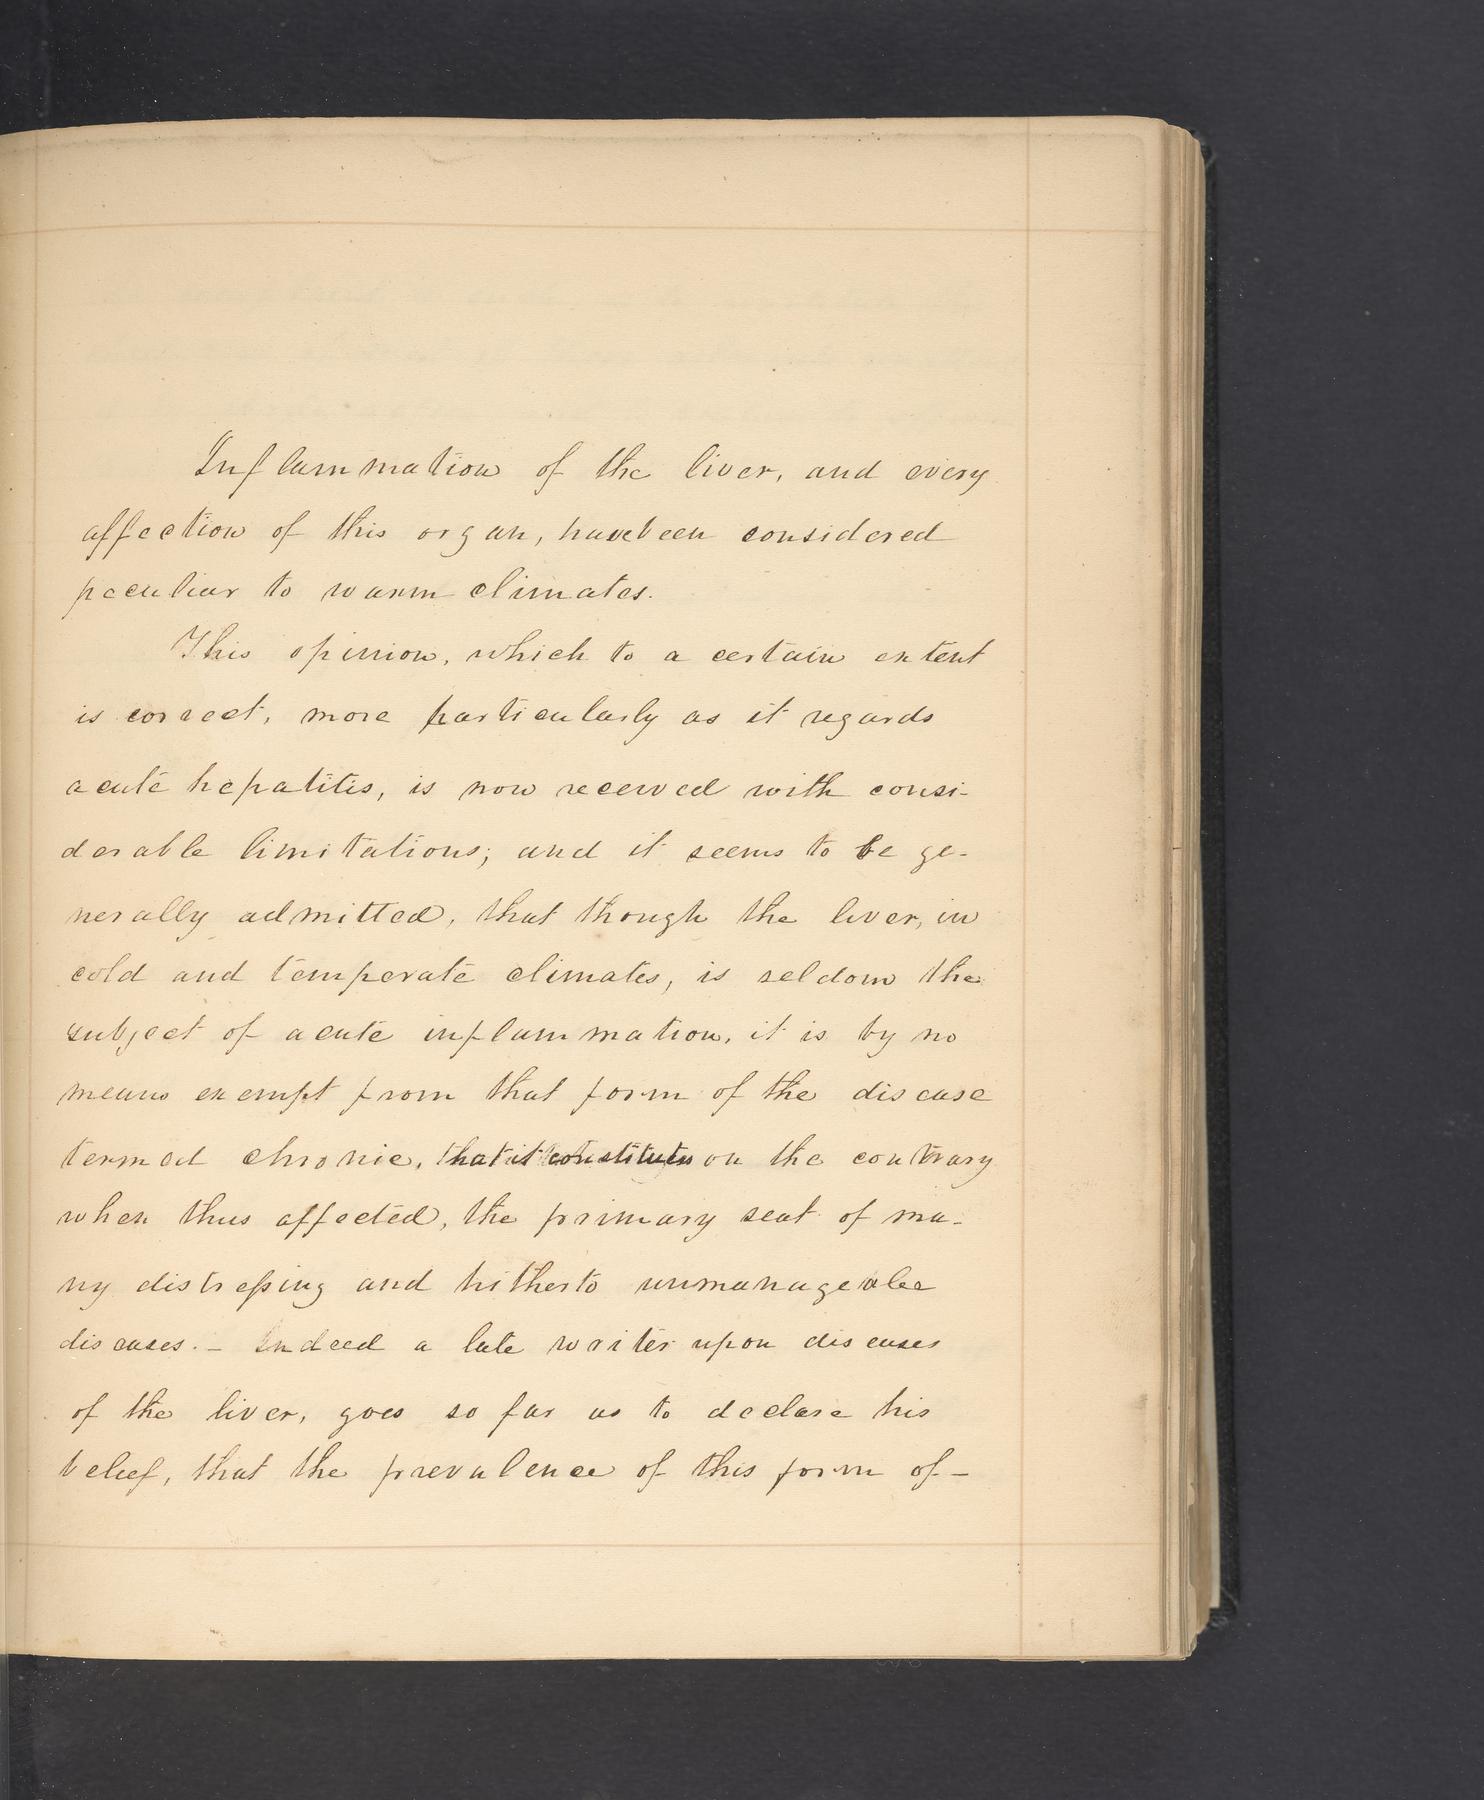 Inflammation of the liver, and every
affection of this organ, have been considered
peculiar to warm climates.
This opinion, which to a certain extent
is correct, more particularly as it regards
acute hepatitis, is now received with consi-
derable limitations; and it seems to be ge-
nerally admitted, that though the liver, in
cold and temperate climates, is seldom the
subject of acute inflammation, it is by no
means exempt from that form of the disease
termed chronic, that it constitutes on the contrary
when thus affected, the primary seat of ma-
ny distressing and hitherto unmanageable
diseases. - Indeed a late writer upon diseases
of the liver, goes so far as to declare his
belief, that the prevalence of this form of -